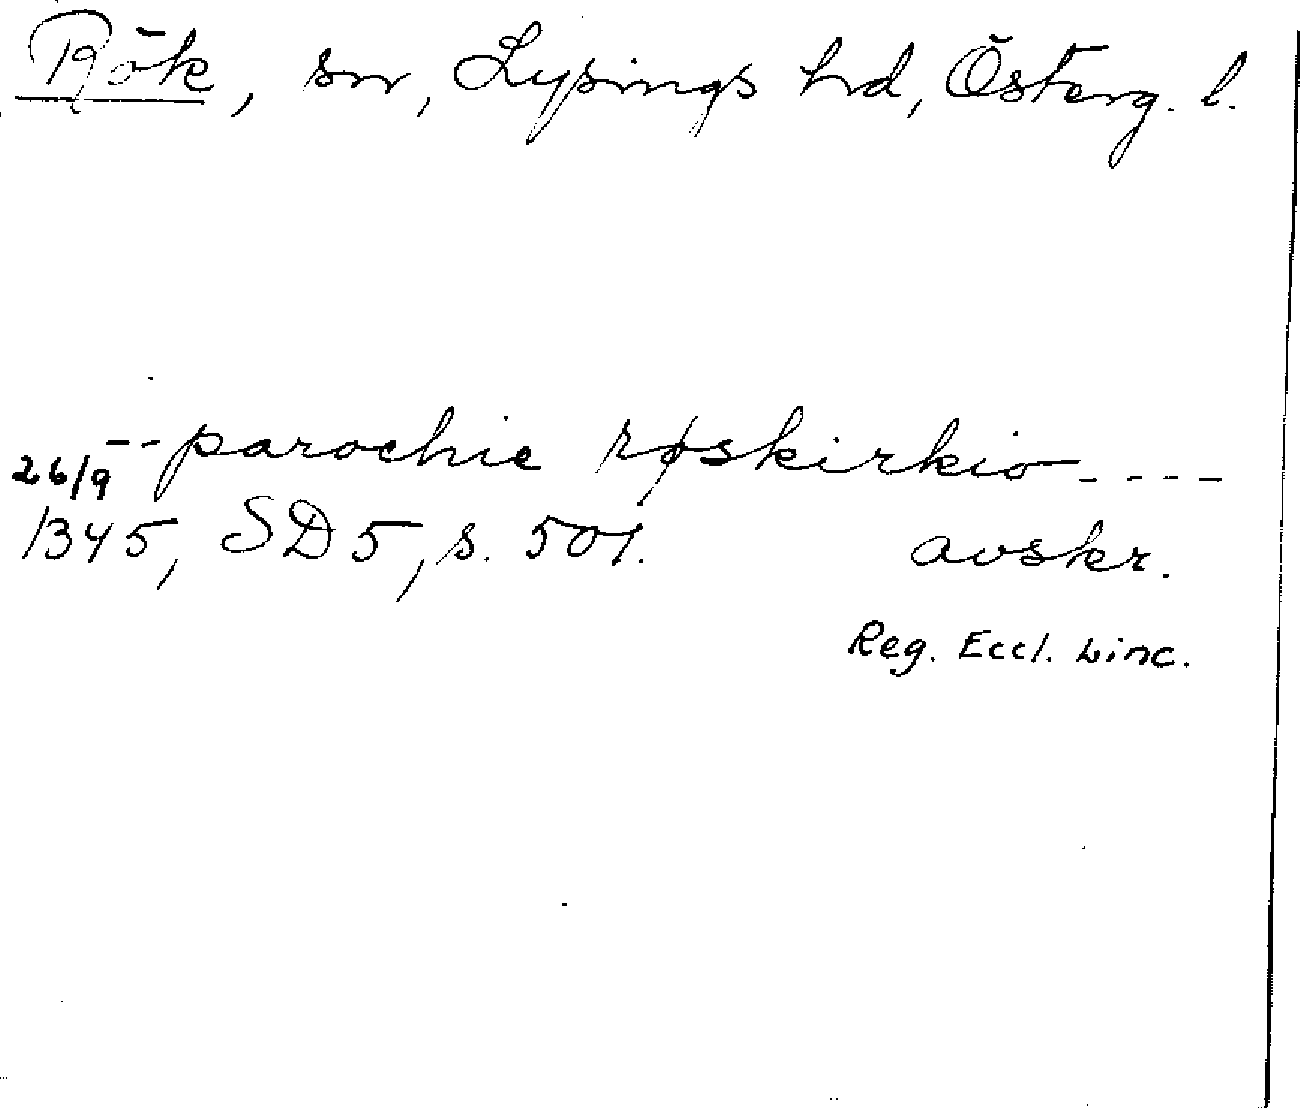 Rök, sn, Lysings hd, Österg. l.
--parochie røskirkio----
26/9
1345, SD5, s. 501. avskr.
Reg. Eccl. Linc.